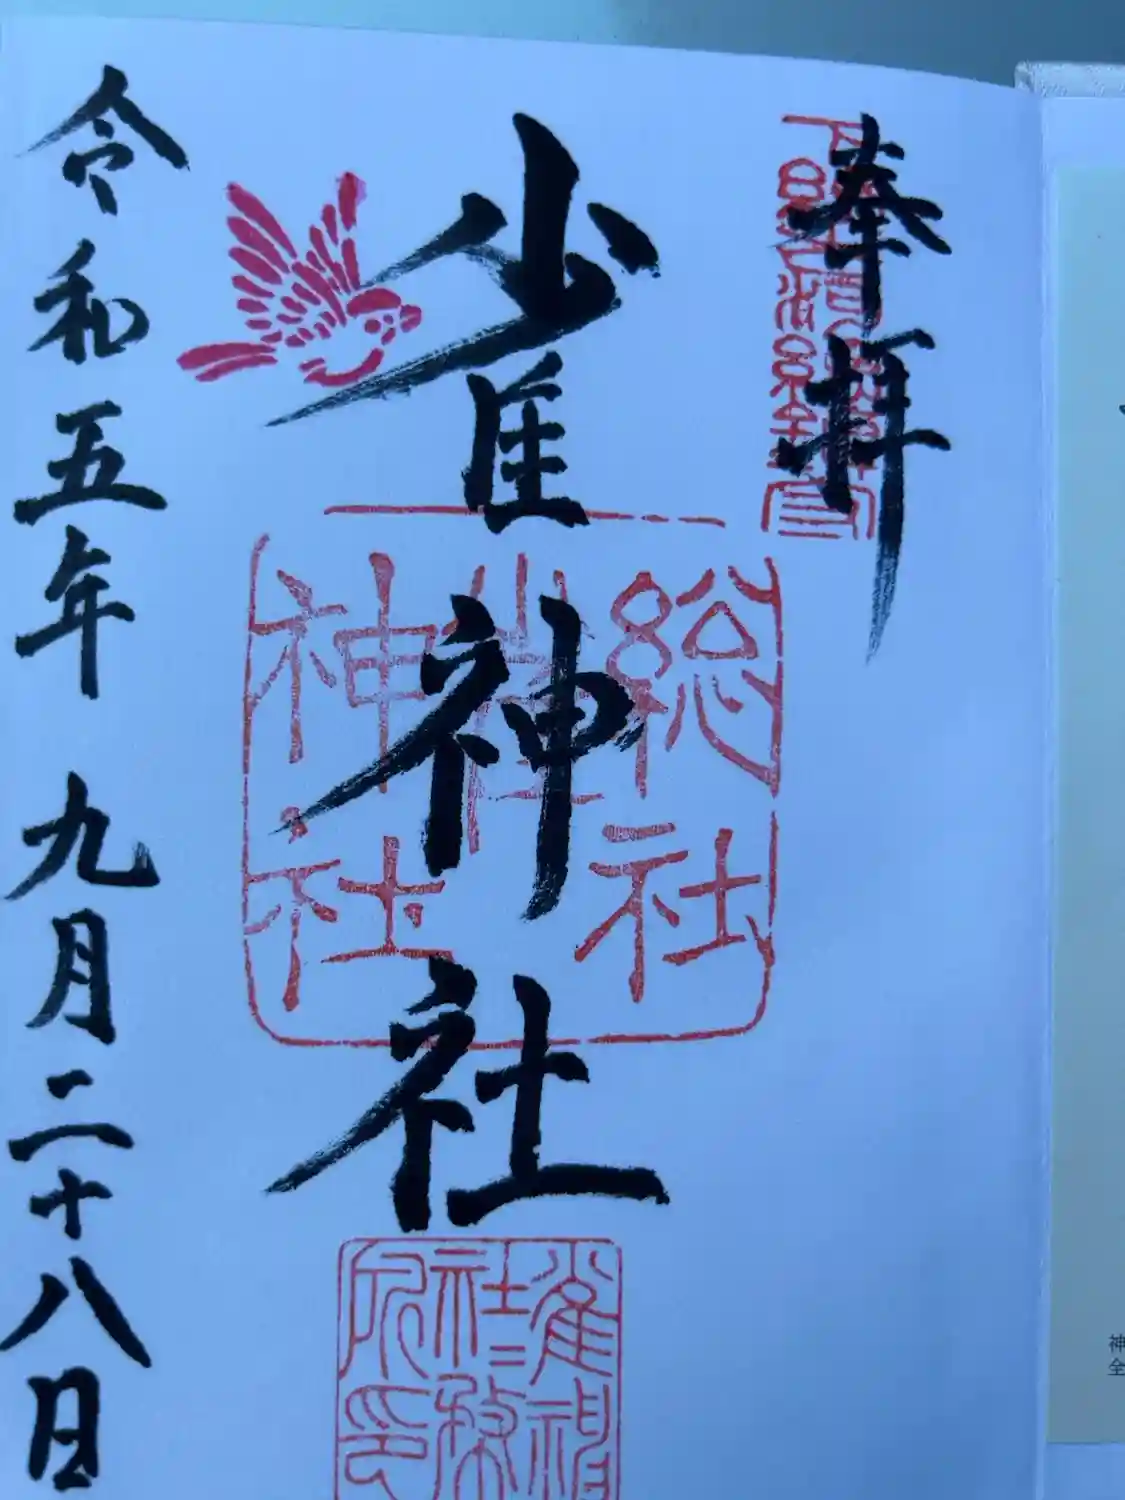 奉拝
雀神社
総社
雀
神社
雀神
社務
所印
令和五年九月二十八日
神
全